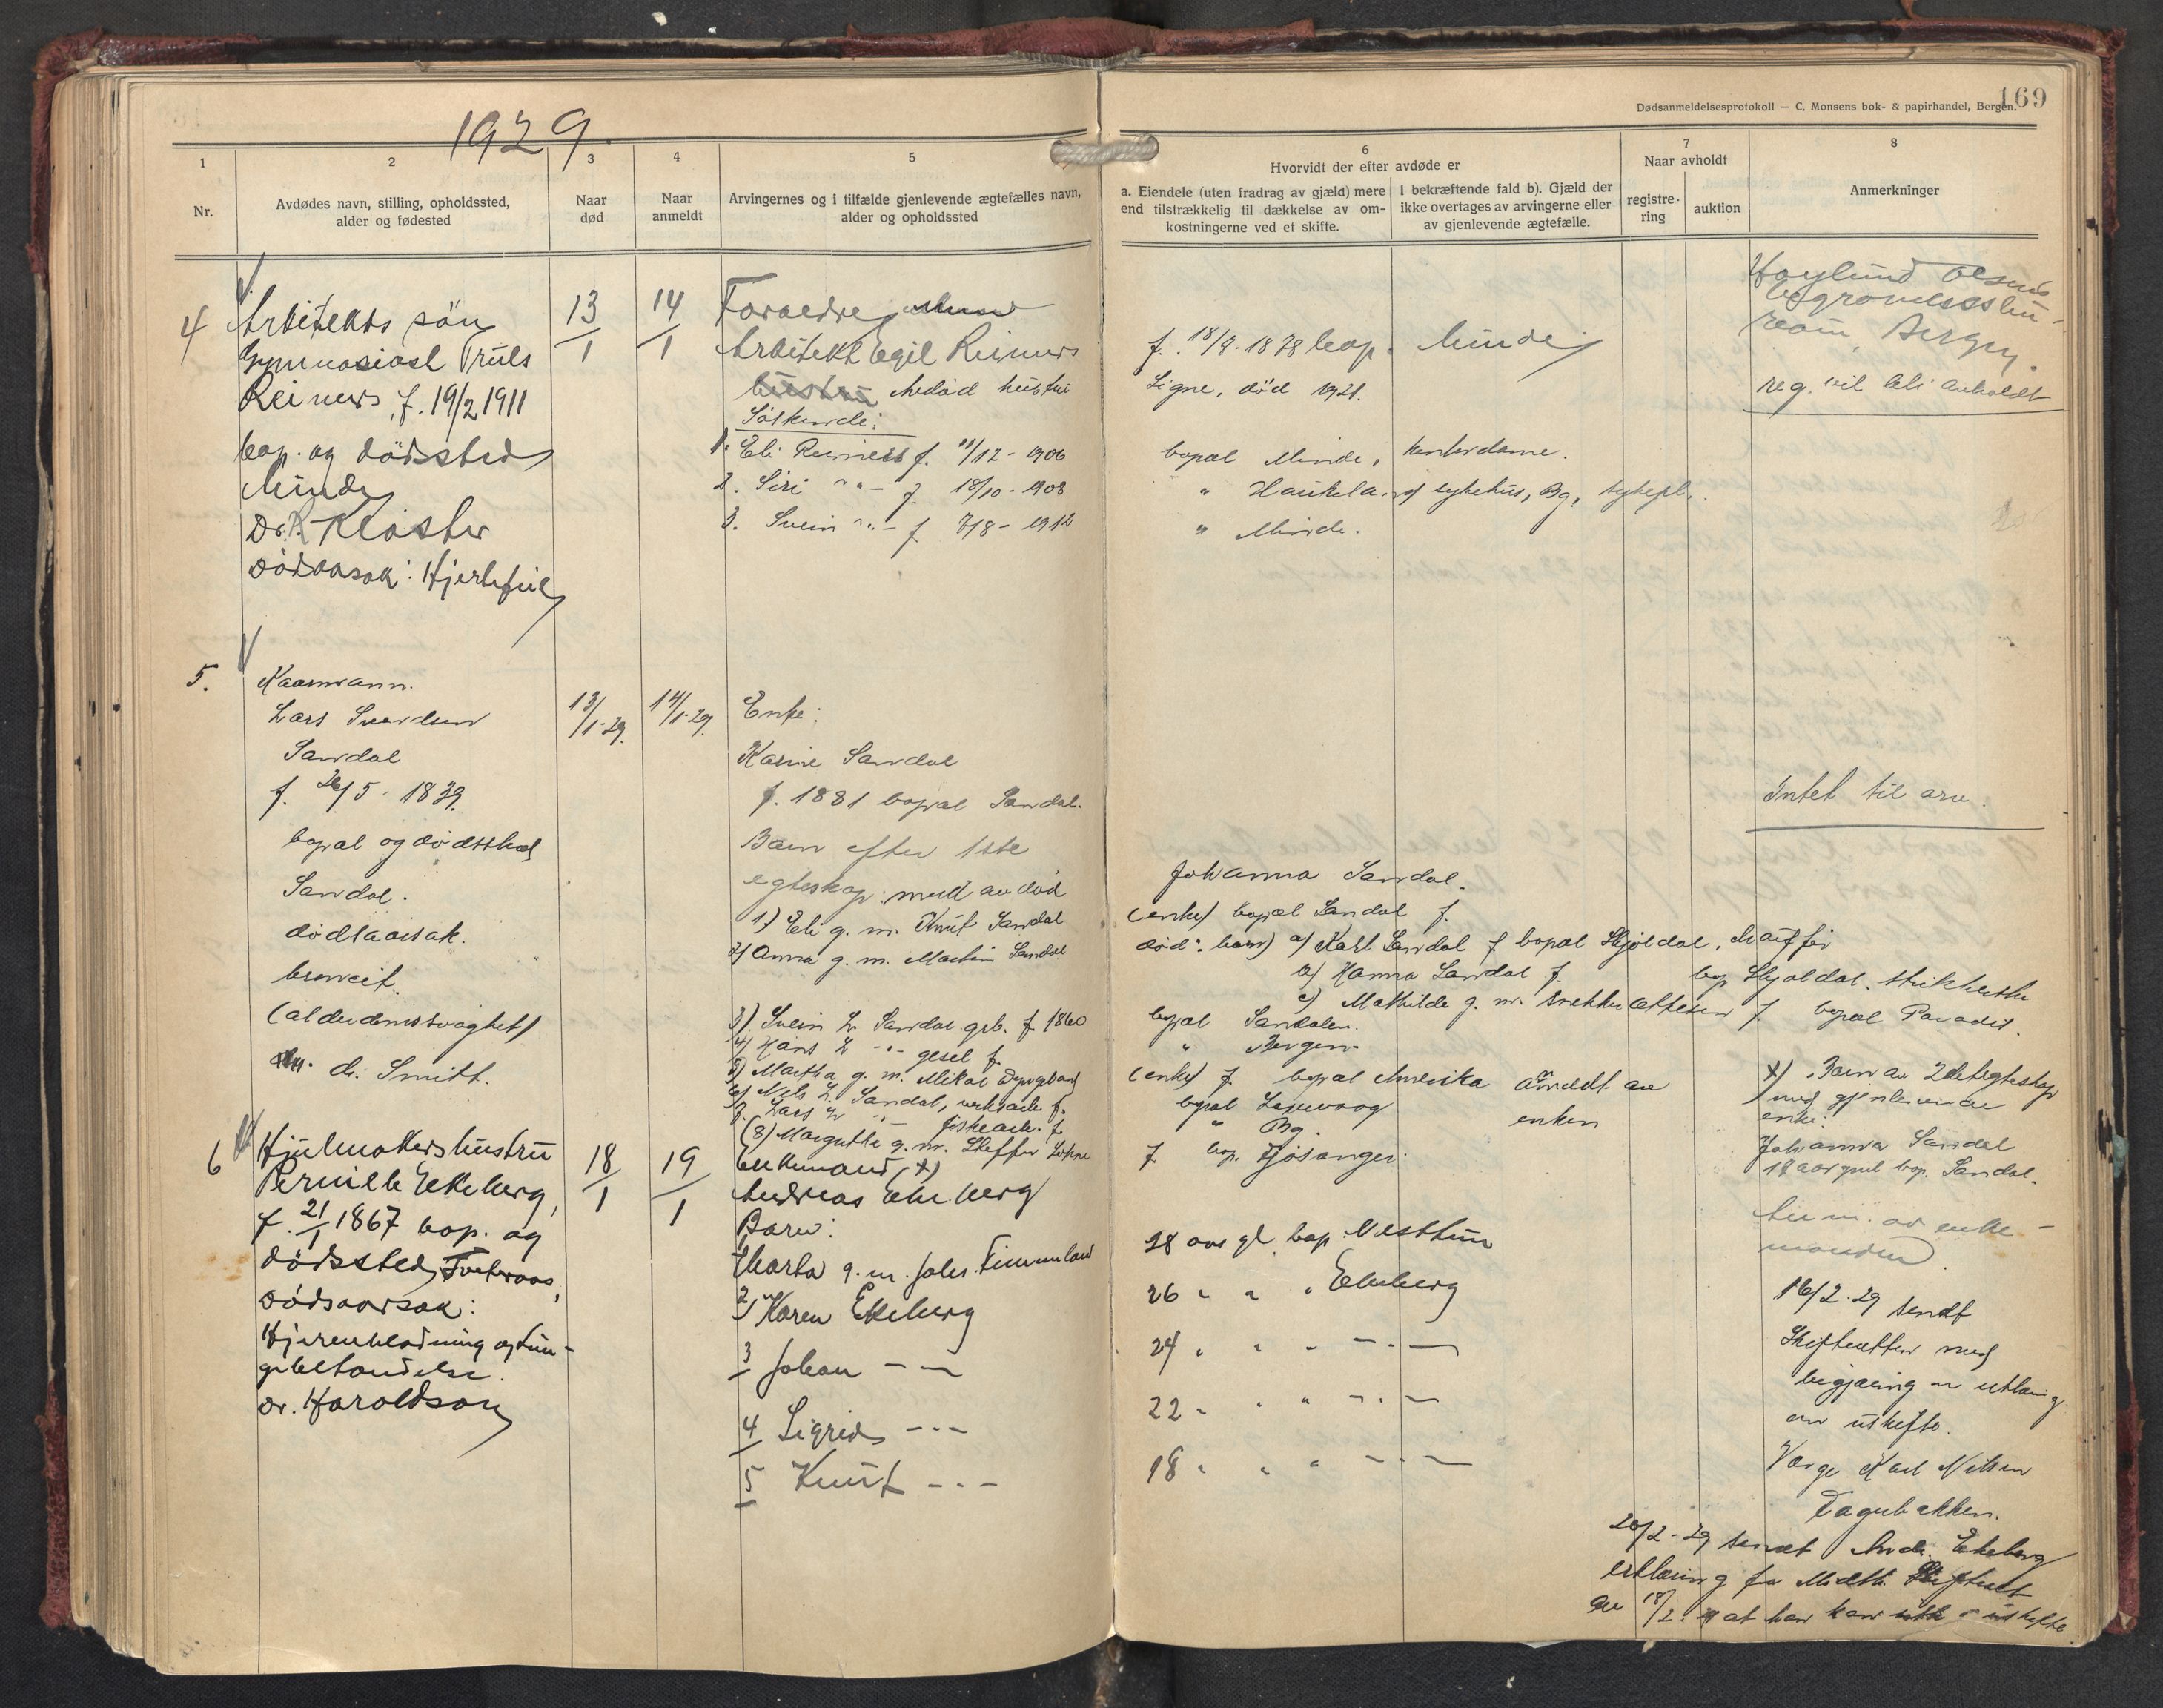 1929.
169
Dødsanmeldelsesprotokoll — C. Monsens bok- & papirhandel, Bergen.
1
2
3
4
5
6
7
8
Nr.
Avdødes navn, stilling, opholdssted,
alder og fødested
Naar
død
Naar
anmeldt
Arvingernes og i tilfælde gjenlevende ægtefælles navn,
alder og opholdssted
Hvorvidt der efter avdøde er
a. Eiendele (uten fradrag av gjæld) mere
end tilstrækkelig til dækkelse av om-
kostningerne ved et skifte.
I bekræftende fald b). Gjæld der
ikke overtages av arvingerne eller
av gjenlevende ægtefælle.
Naar avholdt
registre-
ring
auktion
Anmerkninger
4
Arkitekts søn
Gymnasiast Truls
Reimers, f. 19/2 1911
bop. og dödssted
Minde
Dr. Kloster
dödsaarsak: Hjertefeil
13/1
14/1
Foraeldre
Arkitekt Egil Reimers
f. 18/9. 1878 bop. Minde
avdöd hustru
Signe, död 1921.
Söskende:
1. Eli Reimers f. 11/12 - 1906
bopæl Minde, kontordame.
2. Siri -"- f. 18/10 - 1908
" Haukeland sykehus, Bg, sykepl.
3. Svein -"- f 7/8 - 1912
" Minde.
begravelsesbu-
reau, Bergen.
reg. vil bli avholdt
5.
Kaarmann.
Lars Svendsen
Sandal
f. 26/5 - 1839.
bopæl og dödssted
Sandal.
dödsaarsak.
(alderdomssvaghet)
dr. Smitt.
13/1-29.
14/1-29.
Enke:
Karine Sandal
f. 1881 bopæl Sandal.
Barn efter 1ste
egteskap: med avdöd
Johanna Sandal.
1) Eli g. m. Knut Sandal
(enke) bopæl Sandal f.
2) Anna g. m. Martin Sandal
död: barn) a) Karl Sandal f bopæl Skjoldal, chauffør
b) Hanna Sandal f. bop Skjoldal. strikkerske
c) Mathilde g. m. f bopæl Paradis.
3) Svein L. Sandal grb. f. 1860
bopæl Sandalen.
4) Hans L -"- gesel f.
" Bergen.
5) Martha g. m. Mikal
(enke) f. bopæl Amerika anmeldt av
enken
6) Nils L. Sandal, f.
bopæl
7. Lars L -"- f
" Bg.
(8) Margrethe g. m. Steffen
f bop. Fjösanger.
Intet til arv.
x) Barn av 2det egteskap
med gjenlevende
enke:
Johanna Sandal
18 aar gml bop. Sandal.
6
Hjulmakershustru
Pernille Ekeberg,
f. 21/1 1867 bop. og
dödssted,
dödsaarsak:
Hjerneblödning og lun-
gebetændelse.
Dr. Haroldson
18/1
19/1
Enkemand (x)
Andreas Ekeberg
Barn:
Marta g. m. Johs. Timmland
28 aar gl bop Nesttun
2) Karen Ekeberg
26 " " " Ekeberg
3 Johan - " -
24 " " " - " -
4 Sigrid - " -
22 " " " - " -
5 Knut - " -
18 " " " - " -
Anm. av enke-
manden.
16/2-29 sendt
Skifteretten med
begjæring om utlæg
av uskifte.
Verge Karl Nilsen
20/2-29 sendt Andr. Ekeberg
erklæring fra Midth.
av 18/2. at han kan i uskifte.